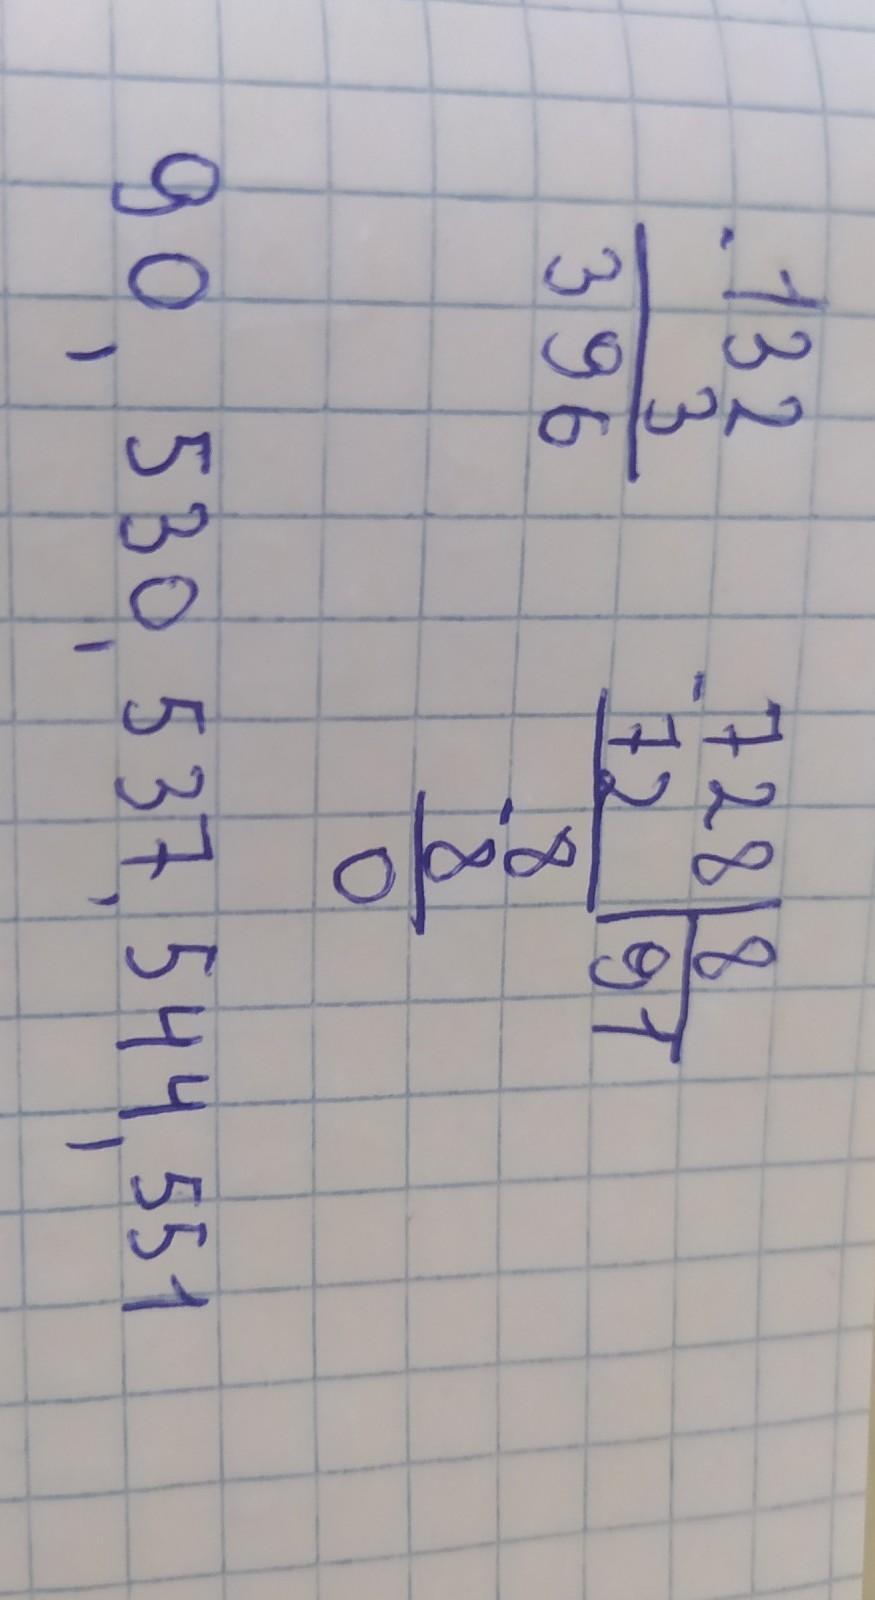 ·132
3
396
-728 8
72 91
-8
8
0
90, 530, 537, 544, 551